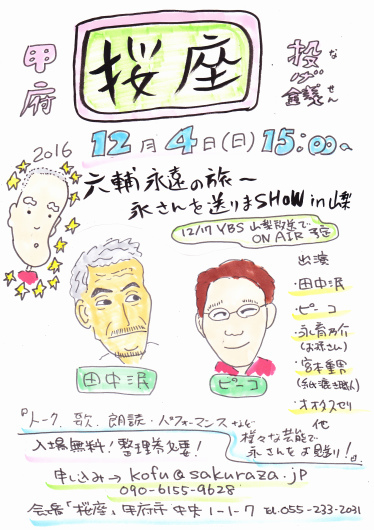 甲府
桜座
投げ銭
なせん
2016 12月4日(日) 15:00〜
六輔永遠の旅〜
永さんを送りまSHOW in 山梨
12/17 YBS 山梨放送で
ON AIR 予定
出演
・田中泯
・ピーコ
・永育乃介
(お孫さん)
・宮本重男
(紙漉き職人)
・オオタスセリ
他
田中泯
ピーコ
『トーク、歌、朗読・パフォーマンスなど
様々な芸能で
永さんをお見送り!』
入場無料!整理券必要!
申し込み→ kofu@sakuraza.jp
090-6155-9628
会場「桜座」甲府市中央1-1-7 Tel.055-233-2031